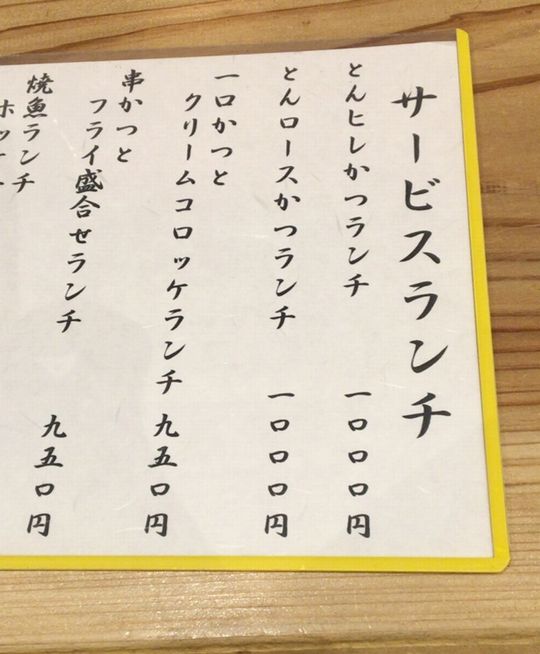 サービスランチ
とんヒレかつランチ 一〇〇〇円
とんロースかつランチ 一〇〇〇円
一口かつと
クリームコロッケランチ 九五〇円
串かつと
フライ盛合せランチ 九五〇円
焼魚ランチ